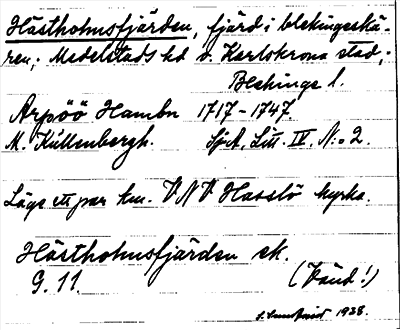 Hästholmsfjärden, fjärd i blekingeskä-
ren; Medelstads hd o. Karlskrona stad;
Blekinge l.
Arpöö Hambn 1717-1747
M. Küllenbergh. SjA, Litt. IV. N:o 2.
Läge ett par km. VNV Hasslö kyrka.
Hästholmsfjärden ek.
G. 11. (Vänd!)
1938.